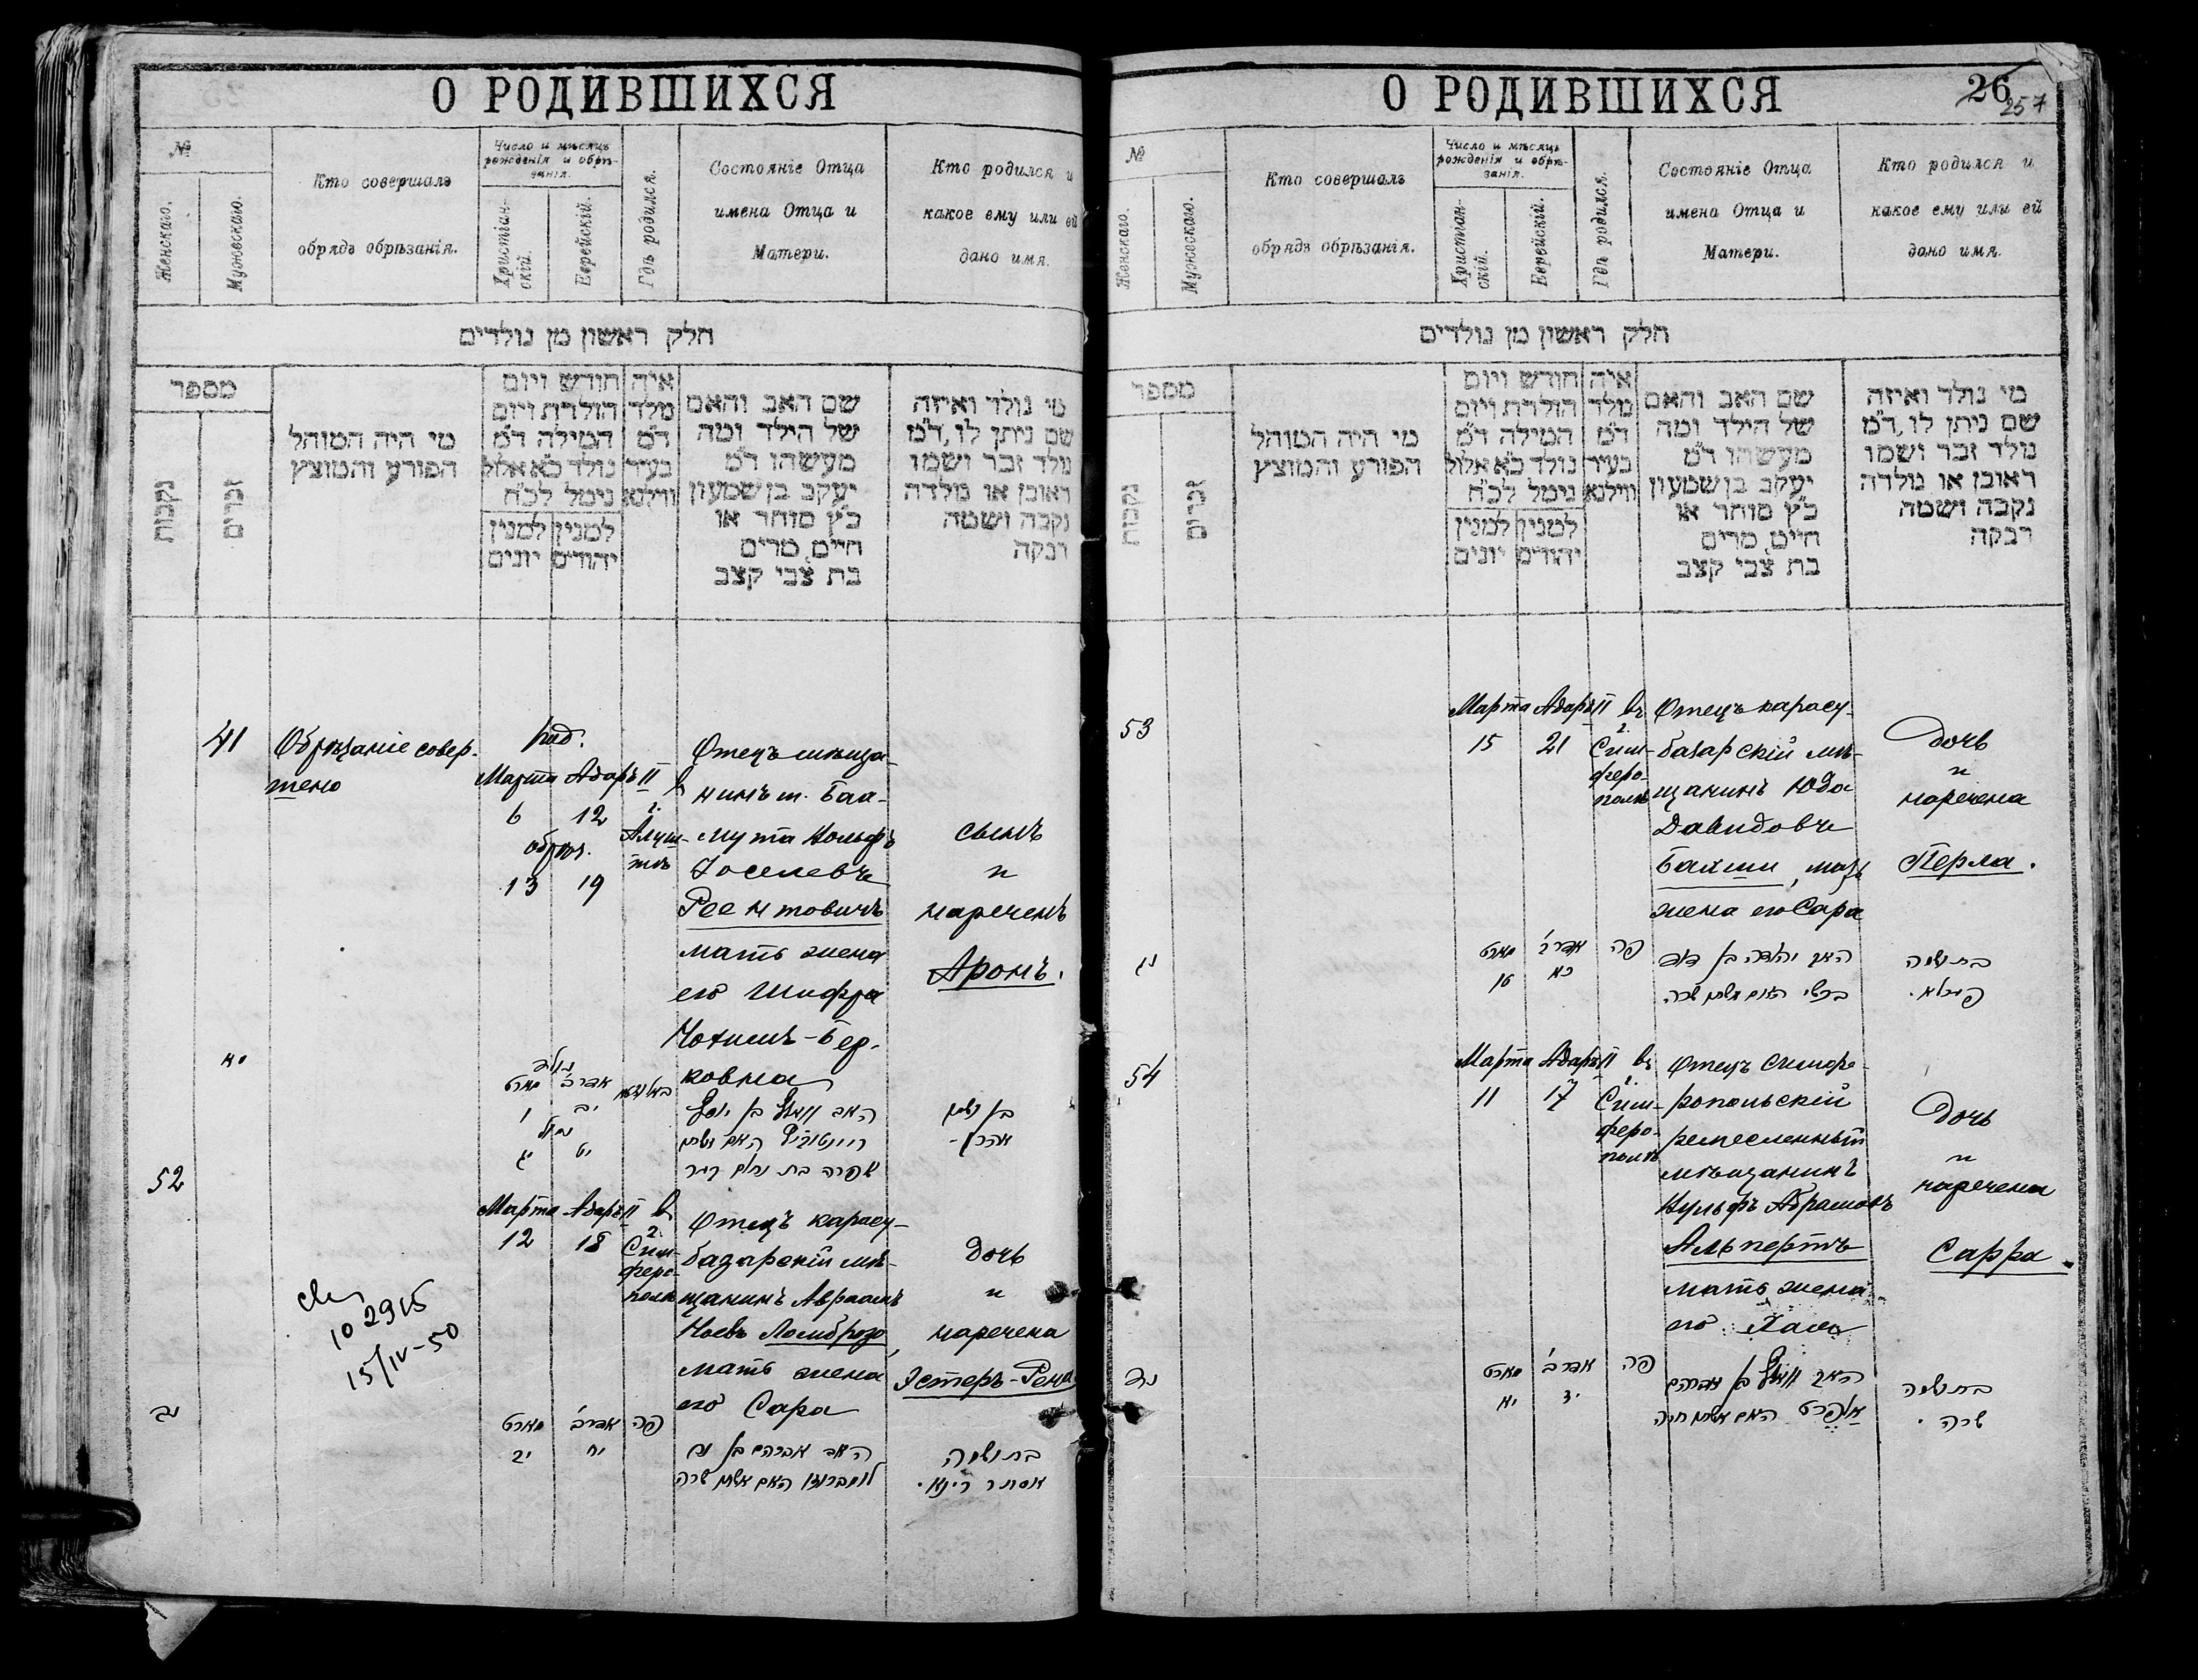 О РОДИВШИХСЯ
№
Женскаго.
Мужескаго.
Кто совершалъ
обрядъ обрѣзанія.
Число и мѣсяцъ
рожденія и обрѣ-
занія.
Христіан-
скій.
Еврейскій.
Гдѣ родился.
Состояніе Отца
имена Отца и
Матери.
Кто родился и
какое ему или ей
дано имя.
חלק ראשון מן נולדים
מספר
נקבות
זכרים
מי היה המוהל
הפורע והמוצץ
חודש ויום
הולדת ויום
המילה ד״מ
נולד כ״א אלול
נימל לכ״ח
למנין למנין
יהודים יונים
איה
מלד
ד״מ
בעיר
ווילנא
שם האב והאם
של הילד ומה
מעשהו ד״מ
יעקב בן שמעון
כ״ץ סוחר או
חייט, מרים
בת צבי קצב
מי נולד ואיזה
שם ניתן לו, ד״מ
נולד זכר ושמו
ראובן או נולדה
נקבה ושמה
רבקה
41
Обрѣзаніе совер-
шено
род.
Марта Адаръ II
6 12
обрѣз.
13 19
в
г.
Алуш-
тѣ
Отецъ мѣща-
нинъ м.
Вольфъ
Іоселевъ
Реентовичъ
мать жена
его Шифра
Бер-
ковна
сынъ
и
нареченъ
Аронъ.
מא
נולד
מארט אדר ב׳
ו יב
נמול
יג יט
האב וואלף בן יוסף
האם אשתו
שפרה בת
בן ושמו
אהרן
52
Марта Адаръ II
12 18
въ
г.
Сим-
феро-
полѣ
Отецъ карасу-
базарскій мѣ-
щанинъ Авраамъ
Ноевъ Ломброзо,
мать жена
его Сара
дочь
и
наречена
Эстеръ-Рена
102915
15/IV-50
נב
מארט אדר ב׳ פה
יב יח
האב אברהם בן נח
לומברוזו האם אשתו שרה
בת ושמה
אסתר רינא.
О РОДИВШИХСЯ
26
257
№
Женскаго.
Мужескаго.
Кто совершалъ
обрядъ обрѣзанія.
Число и мѣсяцъ
рожденія и обрѣ-
занія.
Христіан-
скій.
Еврейскій.
Гдѣ родился.
Состояніе Отца
имена Отца и
Матери.
Кто родился и
какое ему или ей
дано имя.
חלק ראשון מן נולדים
מספר
נקבות
זכרים
מי היה המוהל
הפורע והמוצץ
חודש ויום
הולדת ויום
המילה ד״מ
נולד כ״א אלול
נימל לכ״ח
למנין למנין
יהודים יונים
איה
מלד
ד״מ
בעיר
ווילנא
שם האב והאם
של הילד ומה
מעשהו ד״מ
יעקב בן שמעון
כ״ץ סוחר או
חייט, מרים
בת צבי קצב
מי נולד ואיזה
שם ניתן לו, ד״מ
נולד זכר ושמו
ראובן או נולדה
נקבה ושמה
רבקה
53
Марта Адаръ II
15 21
въ
г.
Сим-
феро-
полѣ
Отецъ карасу-
базарскій мѣ-
щанинъ Юда
Давидовъ
Бахши, мать
жена его Сара
дочь
и
наречена
Перла.
נג
מארט אדר ב׳ פה
טו כא
האב יהודה בן דוד
בכשי האם אשתו שרה
בת ושמה
פערלא.
54
Марта Адаръ II
11 17
въ
г.
Сим-
феро-
полѣ
Отецъ симфе-
ропольскій
ремесленный
мѣщанинъ
Вульфъ Абрамовъ
Альпертъ
мать жена
его Хая
дочь
и
наречена
Сарра.
נד
מארט אדר ב׳ פה
יא יז
האב וואלף בן אברהם
אלפרט האם אשתו חיה
בת ושמה
שרה.